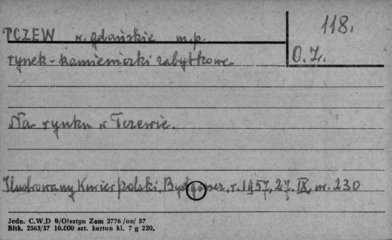 TCZEW w. gdańskie m.p.
118.
rynek-kamieniczki zabytkowe.
O.Z.
Na rynku w Tczewie.
Ilustrowany Kurier Polski, Bydgoszcz, r. 1957, 27. IX, nr. 230
Jedn. C.W.D 8/Olsztyn Zam 2776/on/ 57
Błtk. 2563/57 10.000 szt. karton kl. 7 g 220.